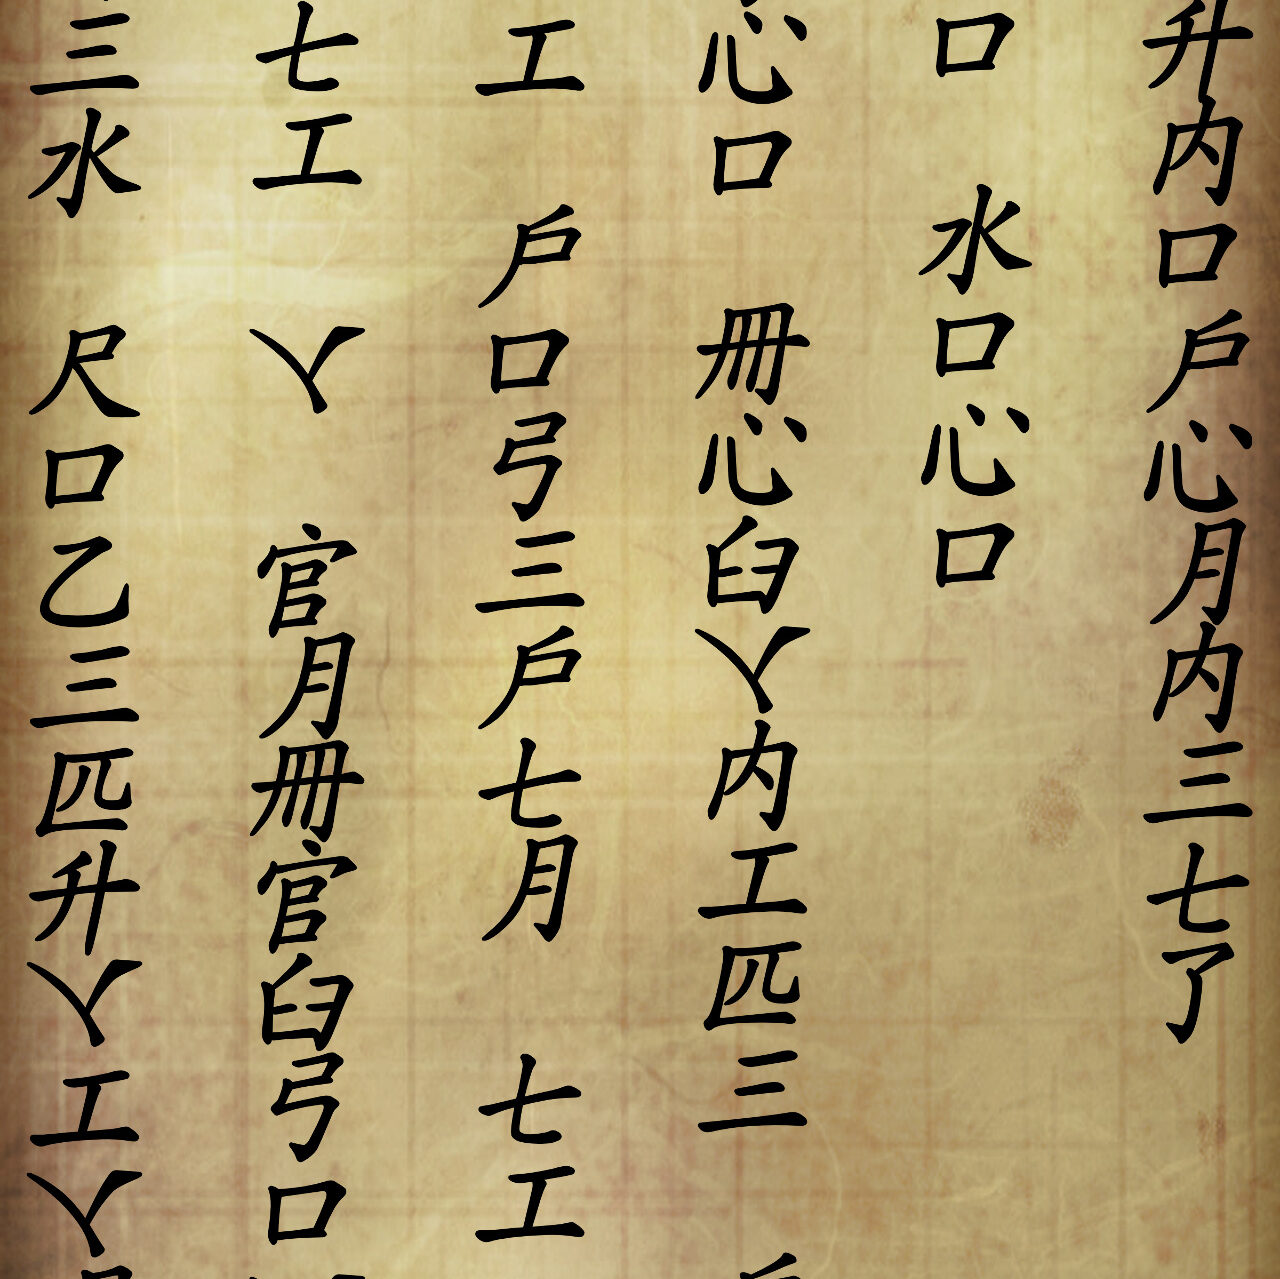 升内口戶心月内三七了
口 水口心口
心口 冊心臼丫内工匹三
工 戶口弓三戶七月 七工
七工 丫 官月冊官臼弓口
三水 尺口乙三匹升丫工丫